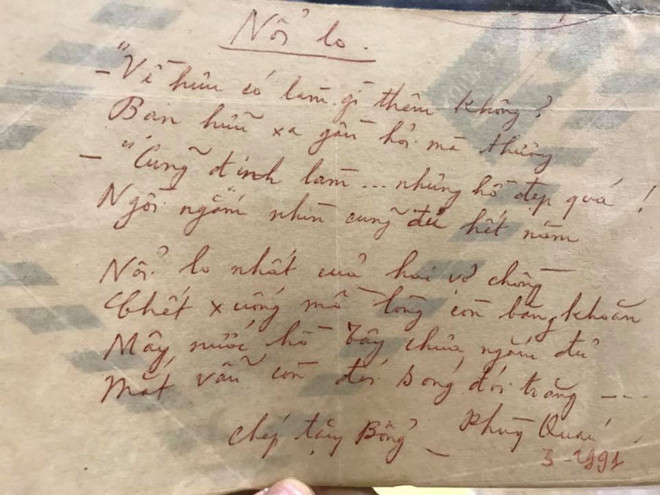 Nỗi lo.
– "Về hưu có làm gì thêm không?
Bạn hữu xa gần hỏi mà thương
– "Cũng định làm... nhưng hồ đẹp quá!
Ngồi ngắm nhìn cũng đủ hết năm
Nỗi lo nhất của hai vợ chồng
Chết xuống mồ lòng còn băng khoăn
Mây nước hồ Tây chưa ngắm đủ
Mắt vẫn còn đói sóng đói trăng ---
Chép tặng Bổng – Phùng Quán
3-1991